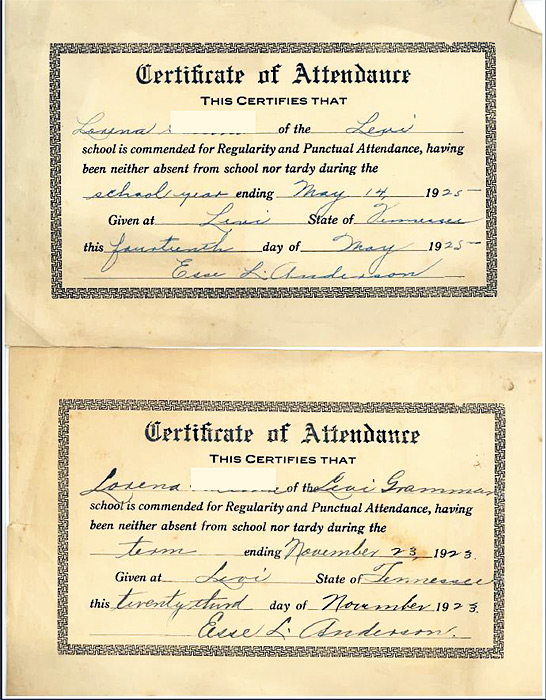 Certificate of Attendance
THIS CERTIFIES THAT
Lorena of the Levi
school is commended for Regularity and Punctual Attendance, having
been neither absent from school nor tardy during the
school year ending May 14, 1925
Given at Levi State of Tennessee
this fourteenth day of May 1925
Esse L. Anderson
Certificate of Attendance
THIS CERTIFIES THAT
Lorena of the Levi Grammar
school is commended for Regularity and Punctual Attendance, having
been neither absent from school nor tardy during the
term ending November 23, 1923.
Given at Levi State of Tennessee
this twenty third day of November 1923.
Esse L. Anderson.